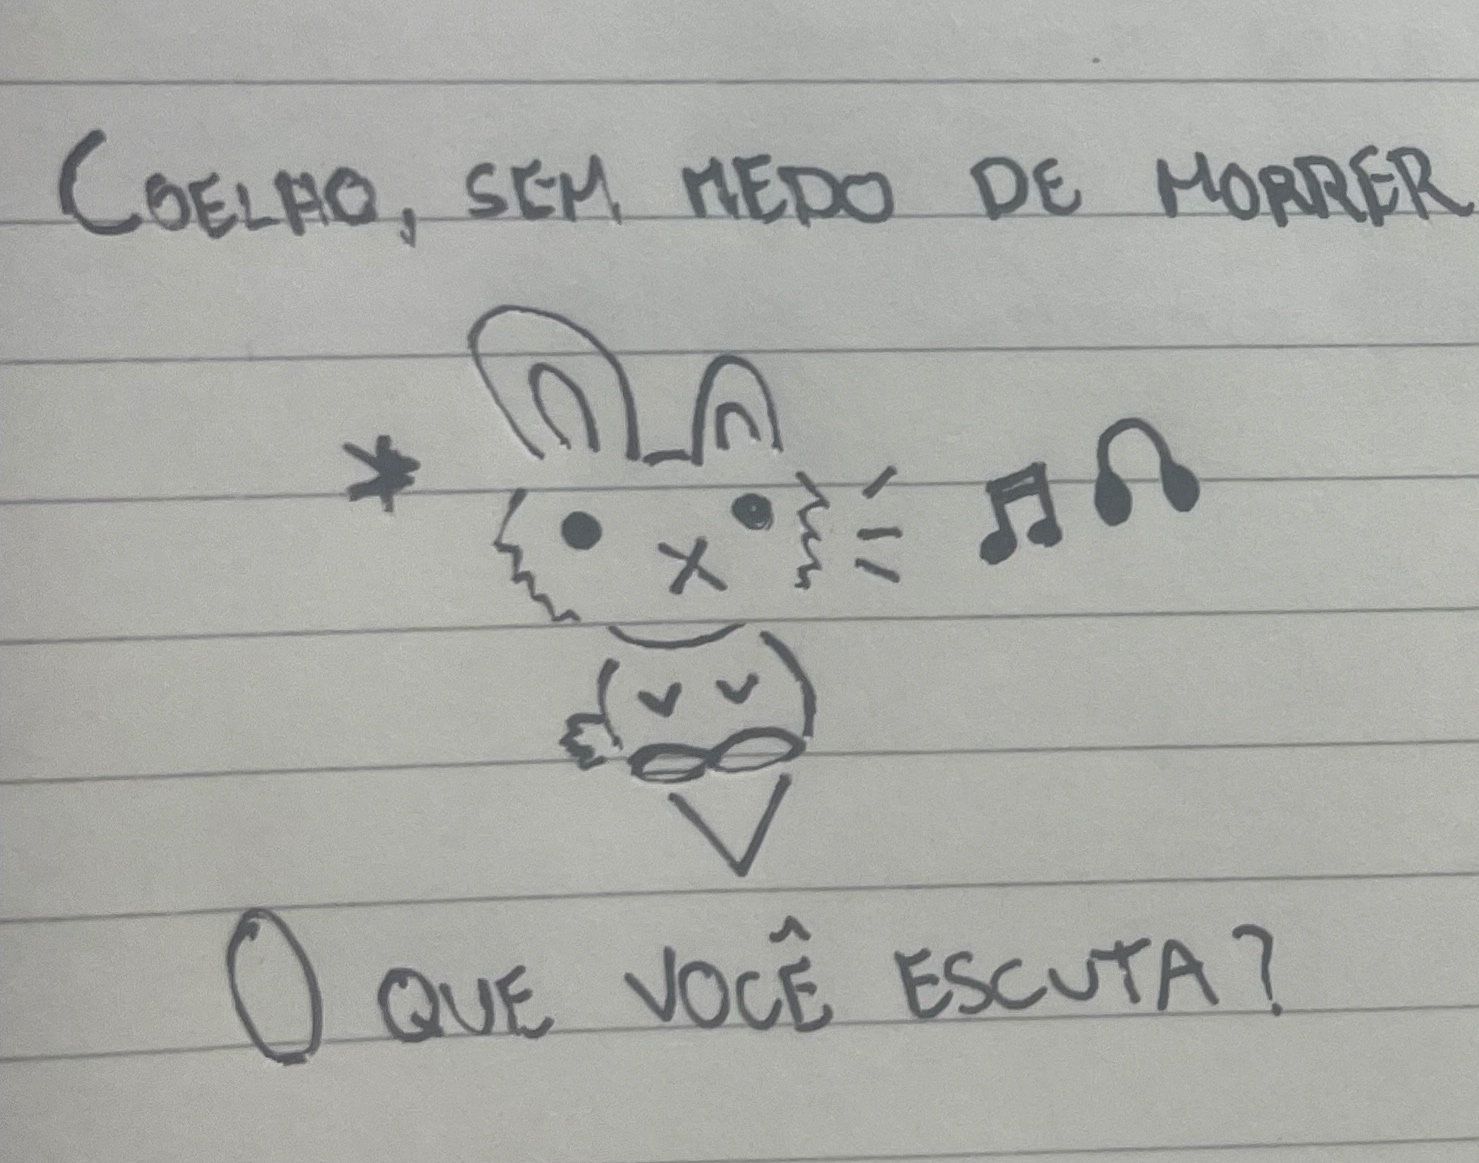 COELHO, SEM MEDO DE MORRER
O QUE VOCÊ ESCUTA?